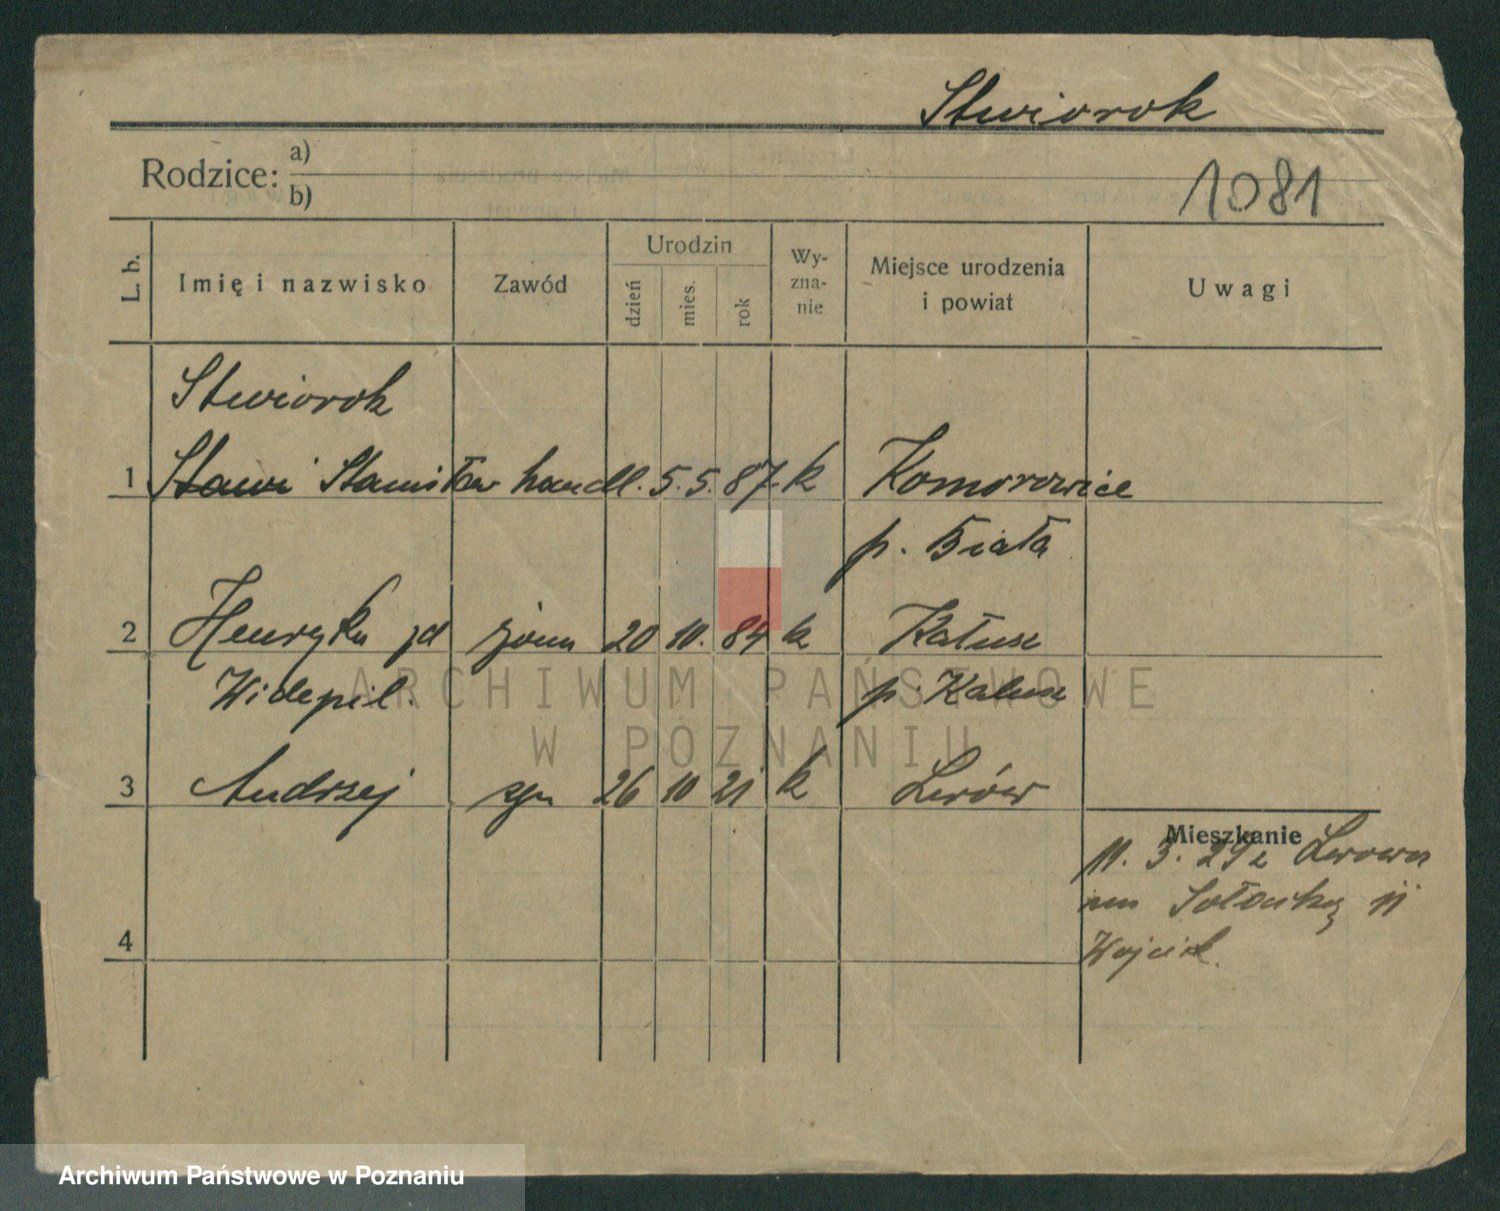 Stwiorok
Rodzice: a)
b)
1081
L. b.
Imię i nazwisko
Zawód
Urodzin
dzień
mies.
rok
Wy-
zna-
nie
Miejsce urodzenia
i powiat
Uwagi
Stwiorok
1 Stawi Stanisław handl. 5. 5. 87. k Komorowice
p. Biała
2 Henryka zd żona 20 10. 84 k Kałusz
p. Kałusz
3 Andrzej syn 26 10 21 k Lwów
Mieszkanie
11. 3. 29 z Lwowa
na 11
4
Wojciech.
ARCHIWUM PAŃSTWOWE
W POZNANIU
Archiwum Państwowe w Poznaniu